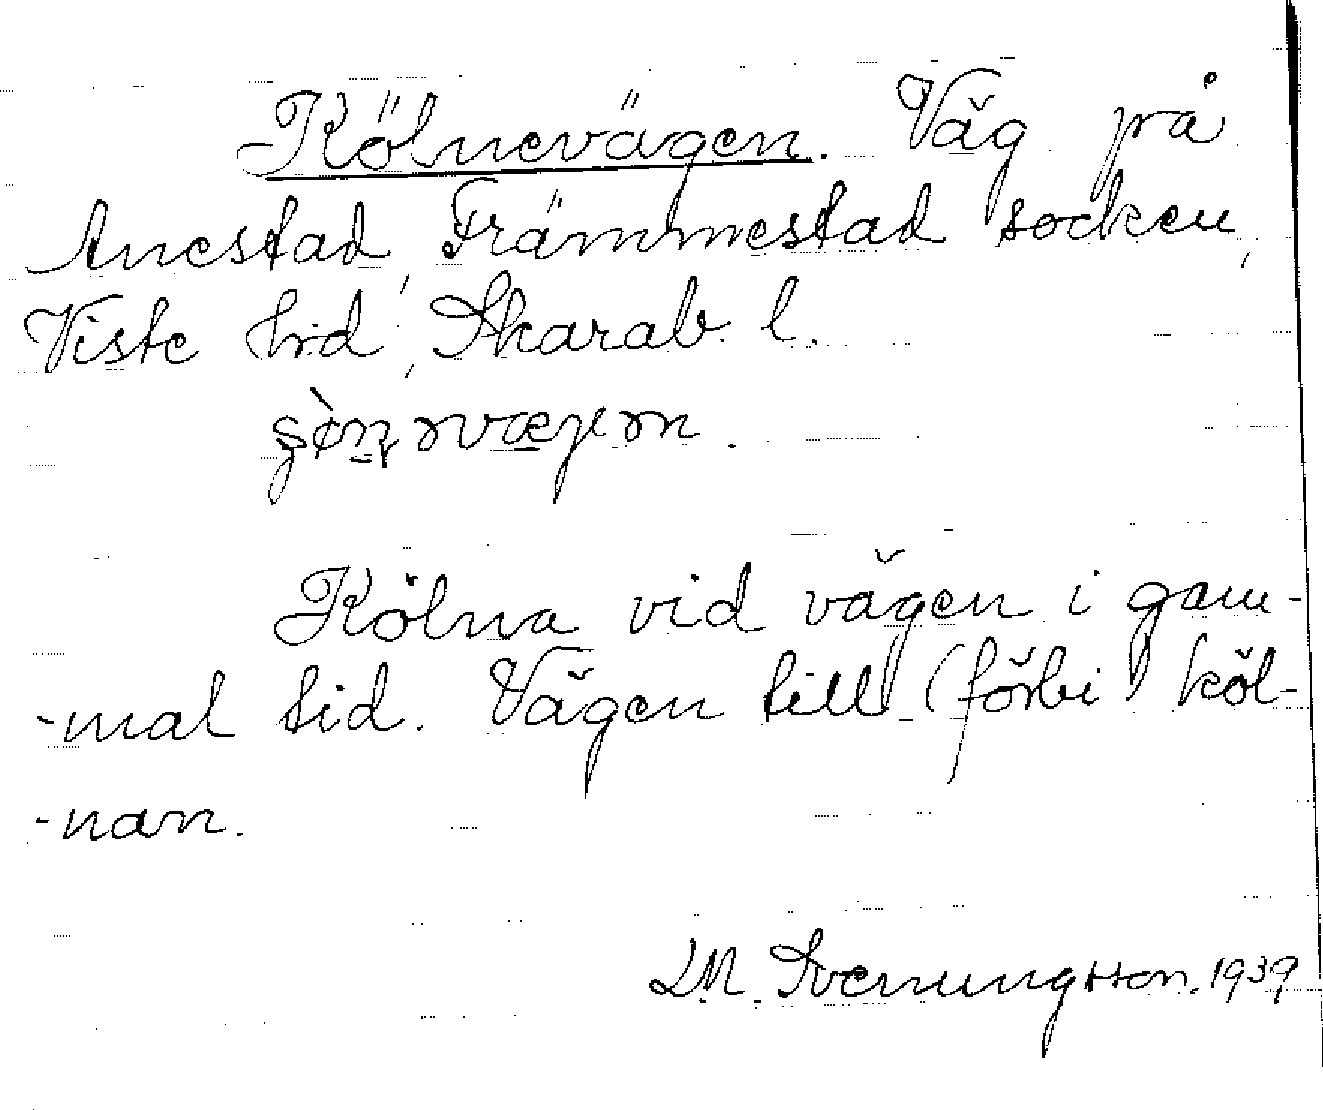 Kölnevägen. Väg på
Anestad, Främmestad socken,
Viste hrd, Skarab. l.
Kölna vid vägen i gam-
-mal tid. Vägen till (förbi) köl-
-nan.
LM. Svenungsson. 1939